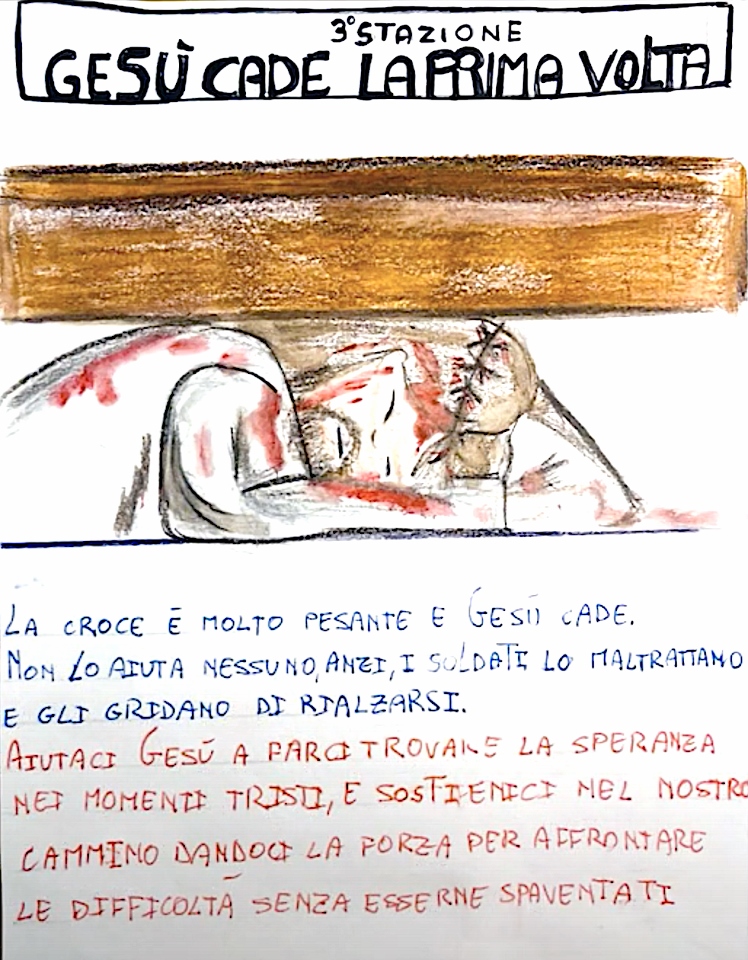 3°STAZIONE
GESÙ CADE LA PRIMA VOLTA
LA CROCE È MOLTO PESANTE E GESÙ CADE.
NON LO AIUTA NESSUNO, ANZI, I SOLDATI LO MALTRATTANO
E GLI GRIDANO DI RIALZARSI.
AIUTACI GESÙ A FARCI TROVARE LA SPERANZA
NEI MOMENTI TRISTI, E SOSTIENICI NEL NOSTRO
CAMMINO DANDOCI LA FORZA PER AFFRONTARE
LE DIFFICOLTÀ SENZA ESSERNE SPAVENTATI